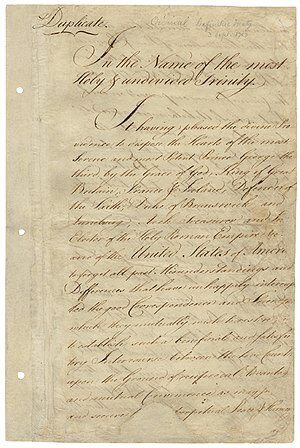 Duplicate.
Original Definitive Treaty
3 Sept. 1783
In the Name of the most
Holy & undivided Trinity.
It having pleased the divine Pro
vidence to dispose the Hearts of the most
Serene and most Potent Prince George the
third, by the Grace of God, King of Great
Britain, France & Ireland, Defender of
the Faith, Duke of Brunswick and
Lunebourg, Arch Treasurer, and Prince
Elector of the Holy Roman Empire &c.
and of the United States of America
to forget all past Misunderstandings and
Differences that have unhappily interrup
ted the good Correspondence and Friendship
which they mutually wish to restore;
to establish such a beneficial and satisfac
tory Intercourse between the two Countries
upon the Ground of reciprocal Advantages
and mutual Convenience as may
and secure to perpetual Peace & Harmony